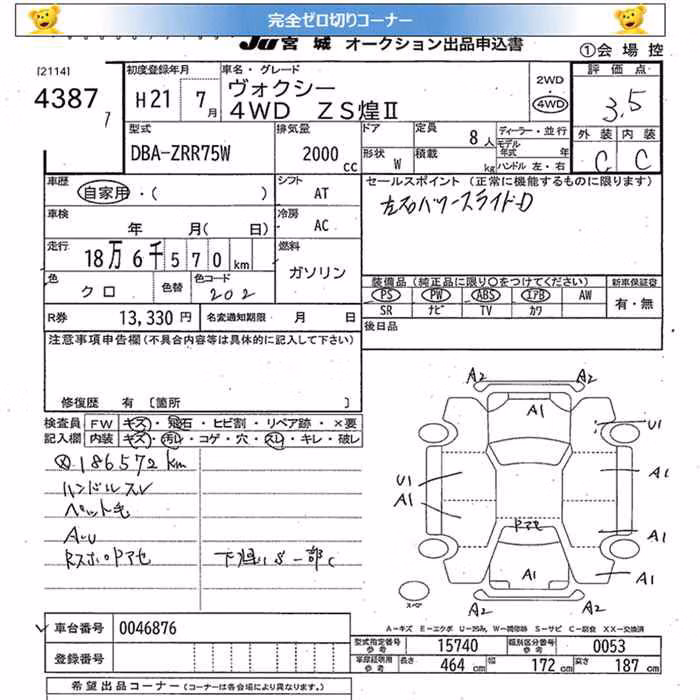 完全ゼロ切りコーナー
JU 宮城 オークション出品申込書
①会場控
[2114]
4387
7
初度登録年月
H21 7月
車名・グレード
ヴォクシー
4WD ZS煌Ⅱ
2WD
4WD
評価点
3.5
外装 内装
C C
型式
DBA-ZRR75W
排気量
2000 cc
ドア
形状 W
定員 8人
積載 kg
ディーラー・並行
モデル年式 年
ハンドル 左・右
車歴
自家用・( )
シフト
AT
セールスポイント (正常に機能するものに限ります)
左右パワースライドD
車検
年 月( 日)
冷房
AC
走行
18万6千570km
燃料
ガソリン
色
クロ
色替
色コード
202
装備品 (純正品に限り○をつけてください)
PS PW ABS エアB AW
SR ナビ TV カワ
新車保証書
有・無
R券 13,330円
名変通知期限 月 日
後日品
注意事項申告欄(不具合内容等は具体的に記入して下さい)
修復歴 有 [箇所 ]
検査員記入欄
FW キズ・飛石・ヒビ割・リペア跡・×要
内装 キズ・汚レ・コゲ・穴・スレ・キレ・破レ
186572km
ハンドルスレ
ペット毛
A・U
RスポロPアセ
下廻りS一部C
A2 A2
A1
U1
U1
A1
A1
A1
Pアセ
A1
A1
A2 A2
スペア
A-キズ E-エクボ U-凹み W-補修跡 S-サビ C-腐食 XX-交換済
車台番号 0046876
登録番号
型式指定番号 参考 15740
類別区分番号 参考 0053
車庫証明用 参考 長さ 464cm 幅 172cm 高さ 187cm
希望出品コーナー (コーナーは各会場により異なります。)